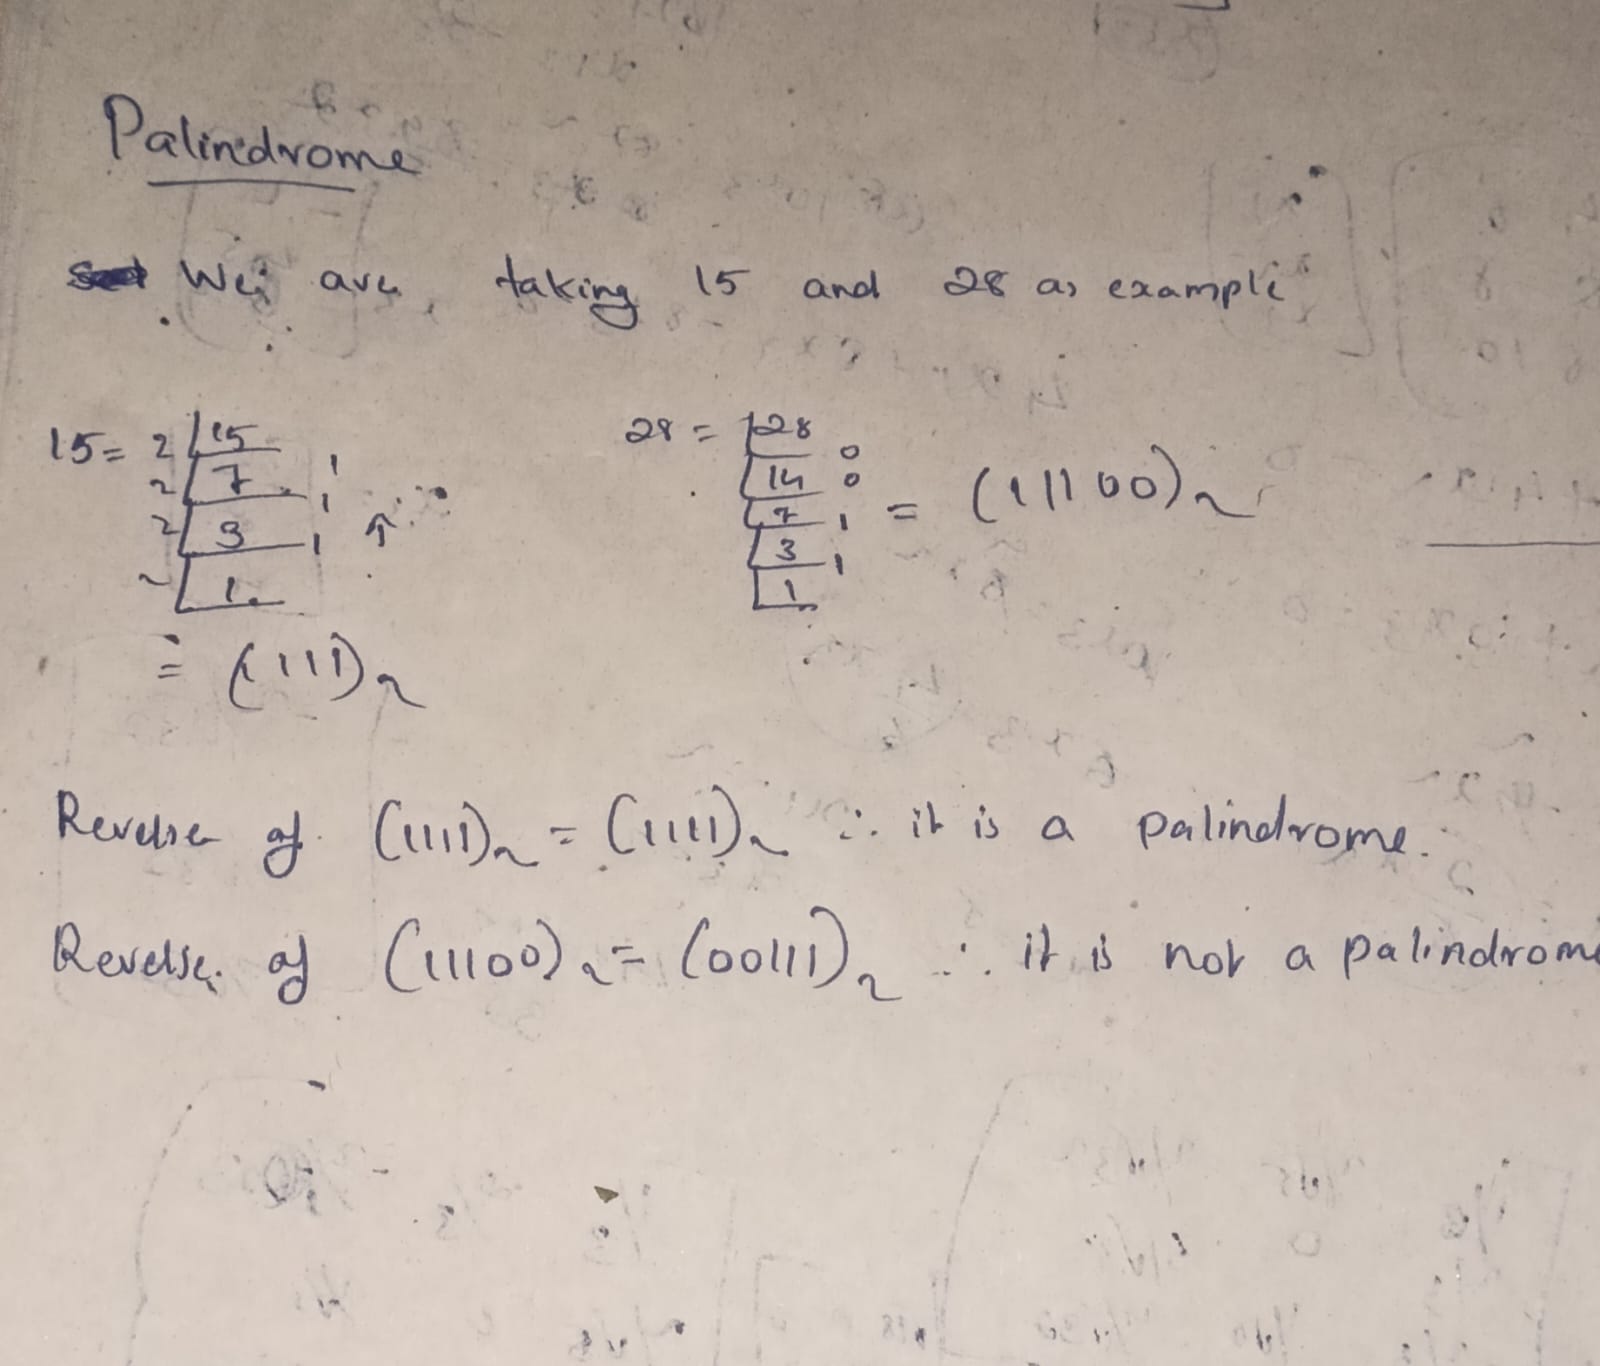 Palindrome
We are taking 15 and 28 as example
15 = 2 15
2 7 1
2 3 1 ↑
2 1 1
= (1111)₂
28 = 28
14 0
7 0
3 1
1 1
= (11100)₂
Reverse of (1111)₂ = (1111)₂ ∴ it is a palindrome.
Reverse of (11100)₂ = (00111)₂ ∴ it is not a palindrome